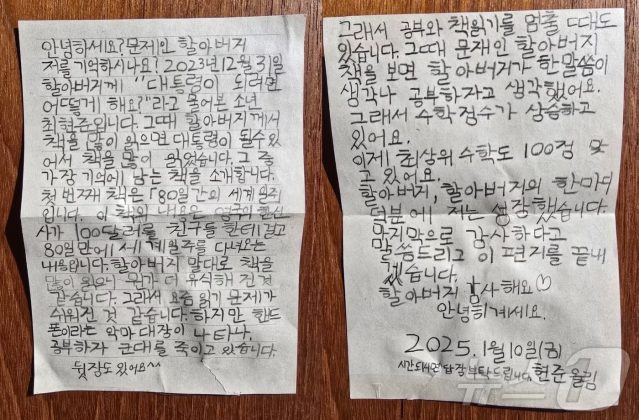 안녕하세요? 문재인 할아버지
저를 기억하시나요? 2023년12월31일
할아버지께 "대통령이 되려면
어떻게 해요?"라고 물어본 소년
최현준입니다. 그때 할아버지께서
책을 많이 읽으면 대통령이 될수있
어서 책을 많이 읽었습니다. 그 중
가장 기억에 남는 책을 소개합니다.
첫 번째 책은 「80일간의 세계일주
입니다. 이 책의 내용은 영국의 한신
사가 100달러를 친구들 한테 걸고
80일만에 세계일주를 다녀오는
내용입니다. 할아버지 말대로 책을
많이 읽으니 뭔가 더 유식해 진 것
같습니다. 그래서 요즘 읽기 문제가
쉬워진 것 같습니다. 하지만 핸드
폰이라는 악마 대장이 나타나
공부하자 군대를 죽이고 있습니다.
뒷장도 있어요^^
그래서 공부와 책읽기를 멈출 때도
있습니다. 그때 문재인 할아버지
책을 보면 할아버지가 한 말씀이
생각나 공부하자고 생각했어요.
그래서 수학점수가 상승하고
있어요.
이제 최상위 수학도 100점 맞
고 있어요.
할아버지, 할아버지의 한마디
덕분에 저는 성장했습니다.
마지막으로 감사하다고
말씀드리고 이 편지를 끝내
겠습니다.
할아버지 감사해요♡
안녕히계세요.
2025.1월10일(금)
시간되시면 답장 부탁드립니다. 현준 올림
뉴스1